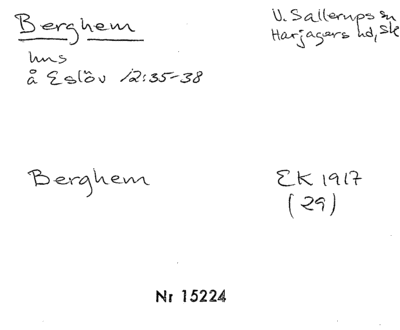 Berghem
V. Sallerups sn
Harjagers hd, Sk
hus
å Eslöv 12:35-38
Berghem
EK 1917
(29)
Nr 15224